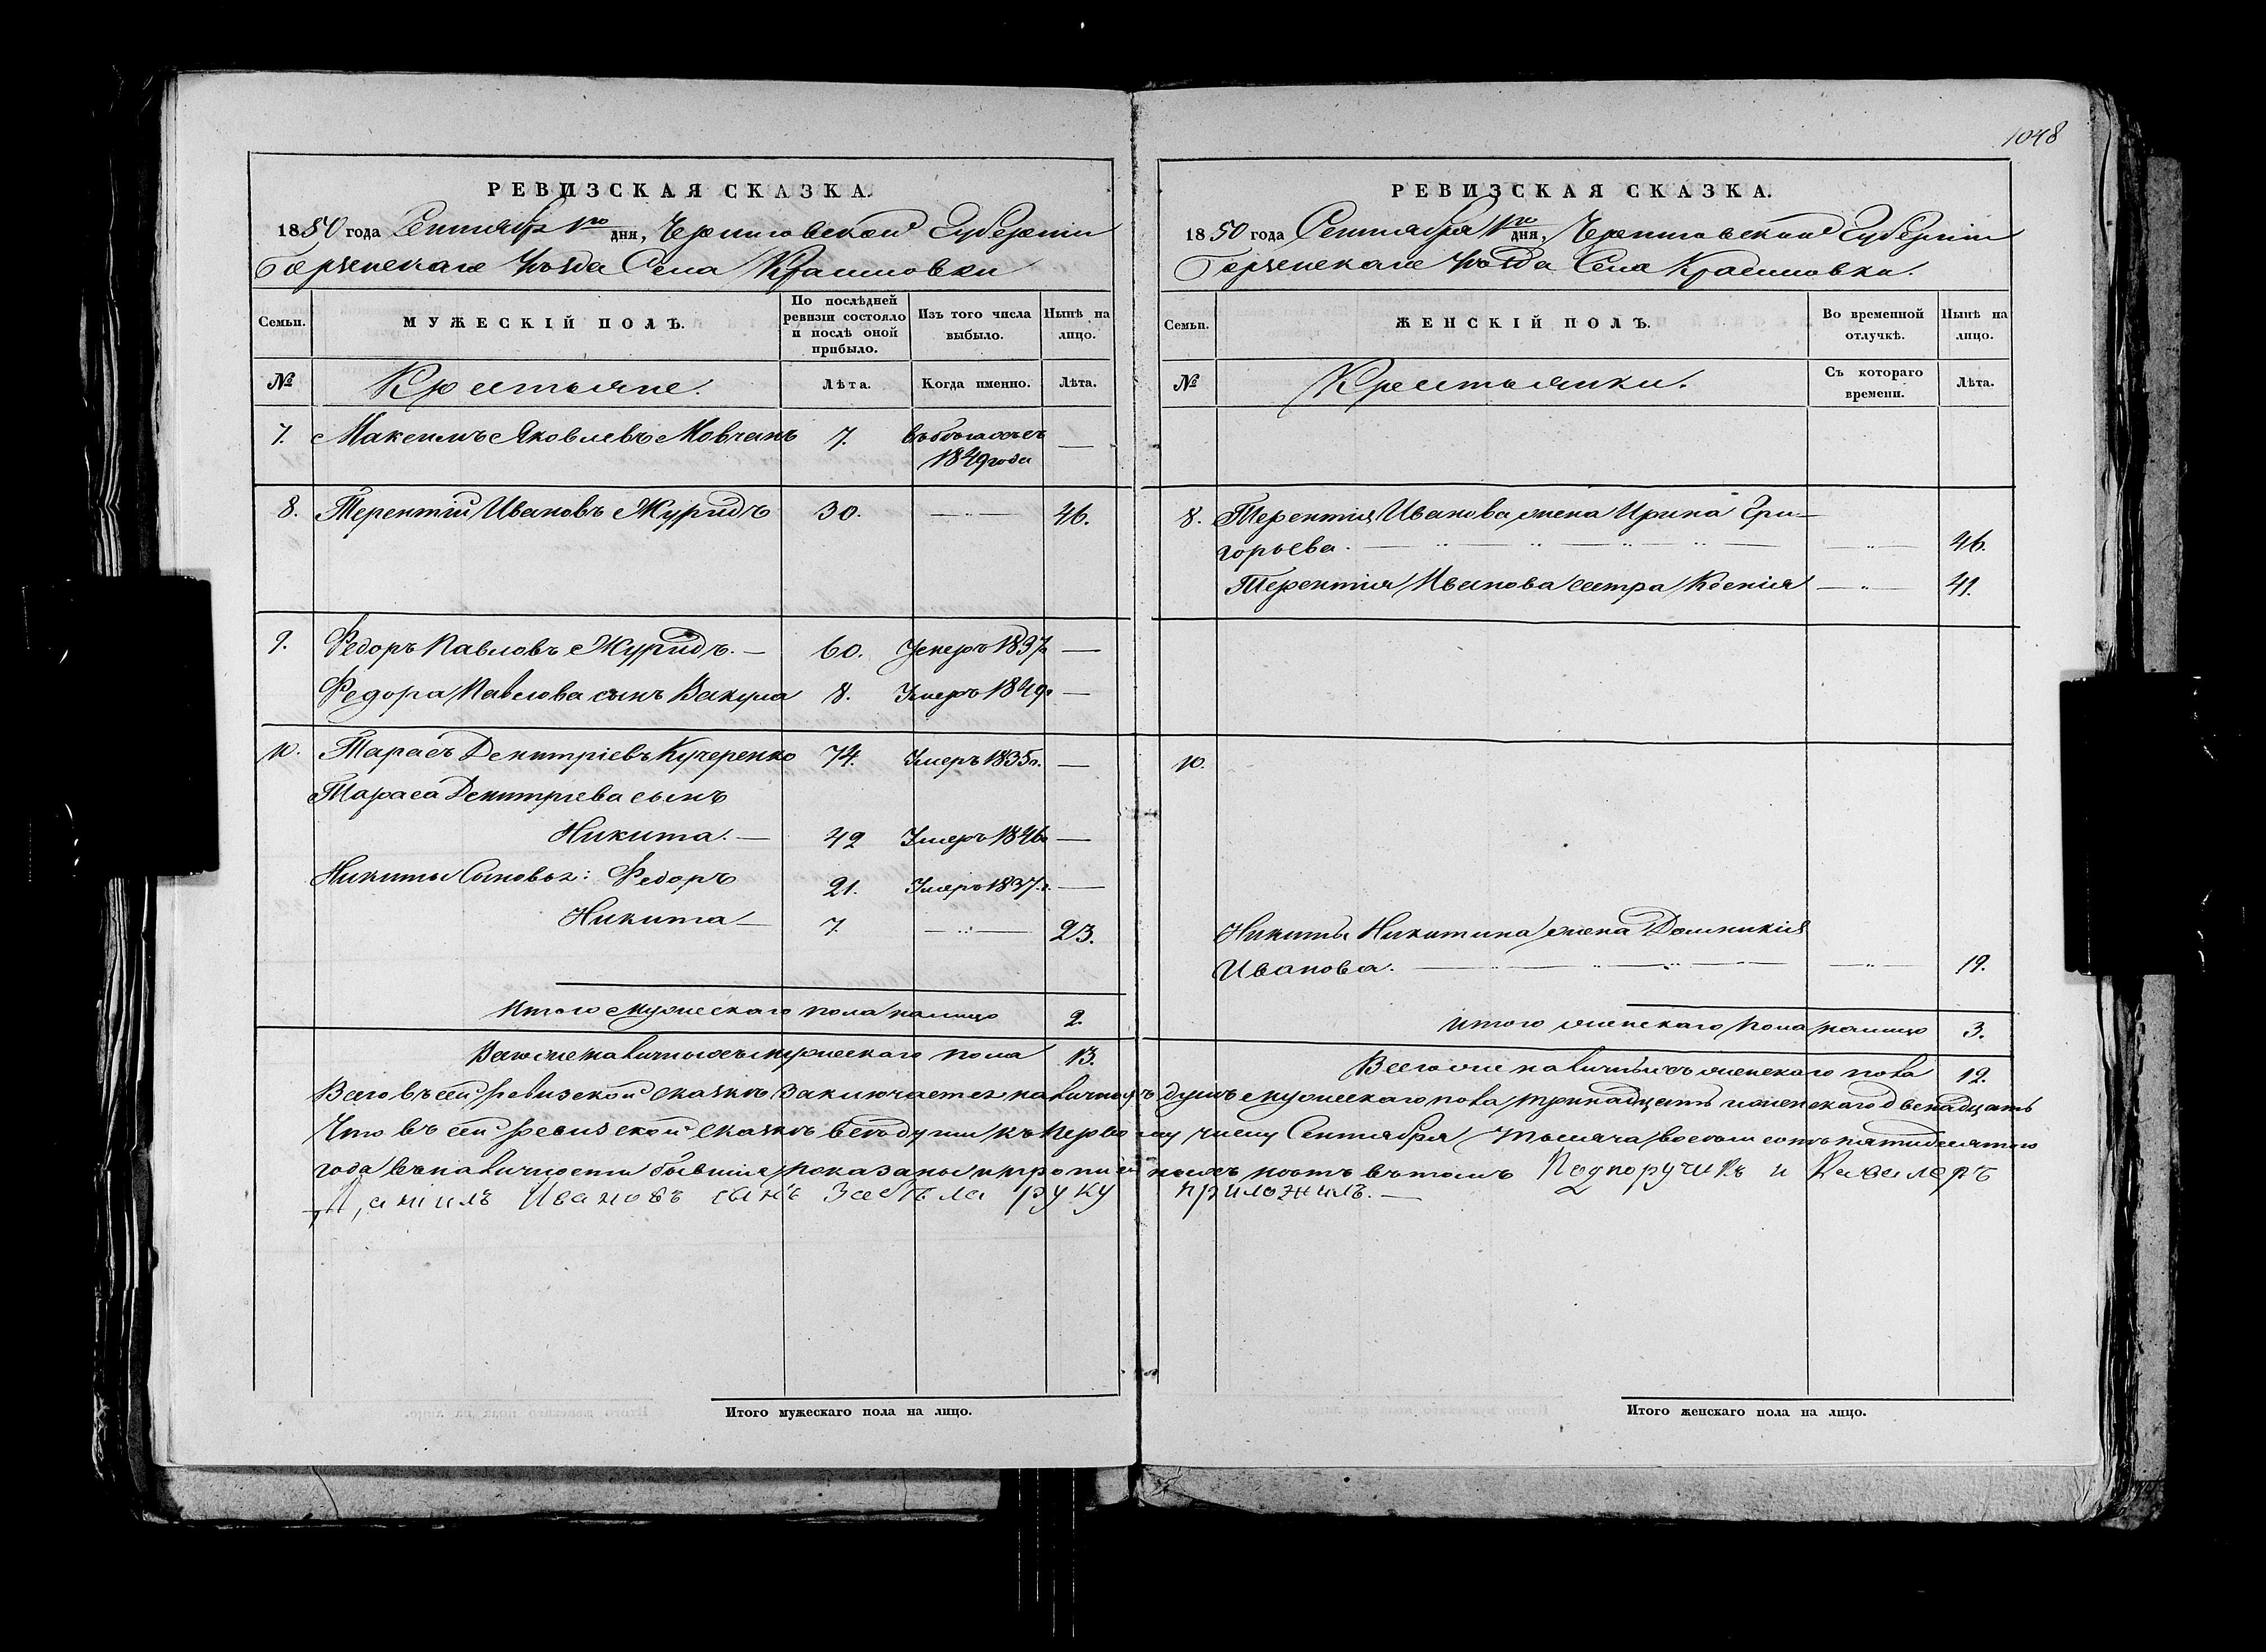 1048
РЕВИЗСКАЯ СКАЗКА.
1850 года Сентября 1го дня, Черниговской Губерніи
Борзенскаго Уѣзда Села Красиловки
Семьи. МУЖЕСКІЙ ПОЛЪ. По послѣдней ревизіи состояло и послѣ оной прибыло. Изъ того числа выбыло. Нынѣ на лицо.
№ Крестьяне. Лѣта. Когда именно. Лѣта.
7. Максимъ Яковлевъ Мовчанъ 7. въ бѣгахъ съ —
1849 года
8. Терентій Ивановъ Журидъ 30. — 46.
9. Федоръ Павловъ Журидъ. — 60. Умеръ 1837г —
Федора Павлова сынъ Вакула 8. Умеръ 1849г —
10. Тарасъ Дмитріевъ Кучеренко 74. Умеръ 1835г. —
Тараса Дмитріева сынъ
Никита. — 42 Умеръ 1846г —
Никиты Сыновья: Федоръ 21. Умеръ 1837.г. —
Никита — 7. — 23.
Итого мужескаго пола налицо 2.
Всего же наличныхъ мужескаго пола 13.
РЕВИЗСКАЯ СКАЗКА.
1850 года Сентября 1го дня, Черниговской Губерніи
Борзенскаго Уѣзда Села Красиловки.
Семьи. ЖЕНСКІЙ ПОЛЪ. Во временной отлучкѣ. Нынѣ на лицо.
№ Крестьянки. Съ котораго времени. Лѣта.
8. Терентія Иванова жена Ирина Гри-
горьева. — 46.
Терентія Иванова сестра Ксенія — 41.
10.
Никиты Никитина жена Домникія
Иванова. — 19.
Итого женскаго пола налицо 3.
Всего же наличныхъ женскаго пола 12.
Всего въ сей ревизской сказкѣ заключается наличныхъ душъ мужескаго пола тринадцать и женскаго двенадцать
Что въ сей ревизской сказкѣ всѣ души къ первому числу Сентября тысяча восемь сотъ пятидесятого
года въ наличности бывшія показаны и прописныхъ нѣтъ въ томъ Подпоручикъ и Кавалеръ
Даніилъ Ивановъ сынъ Забѣла руку приложилъ. —
Итого мужескаго пола на лицо.
Итого женскаго пола на лицо.